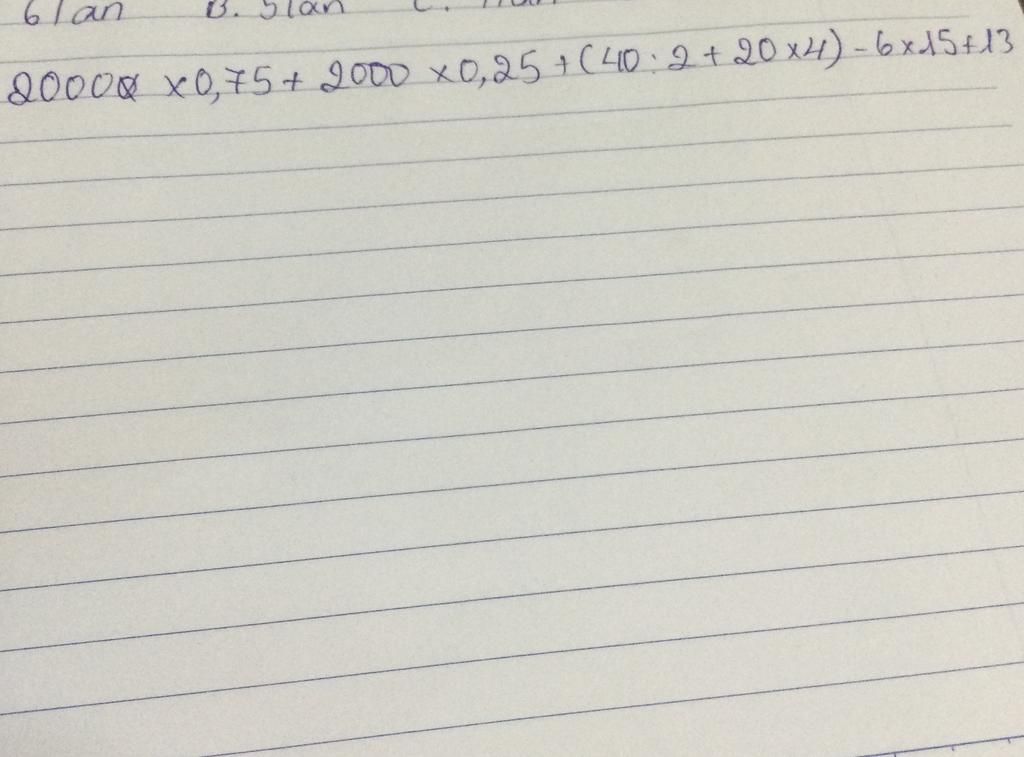 6 lần B. 5 lần C.
2000 x 0,75 + 2000 x 0,25 + (40 : 2 + 20 x 4) - 6 x 15 + 13